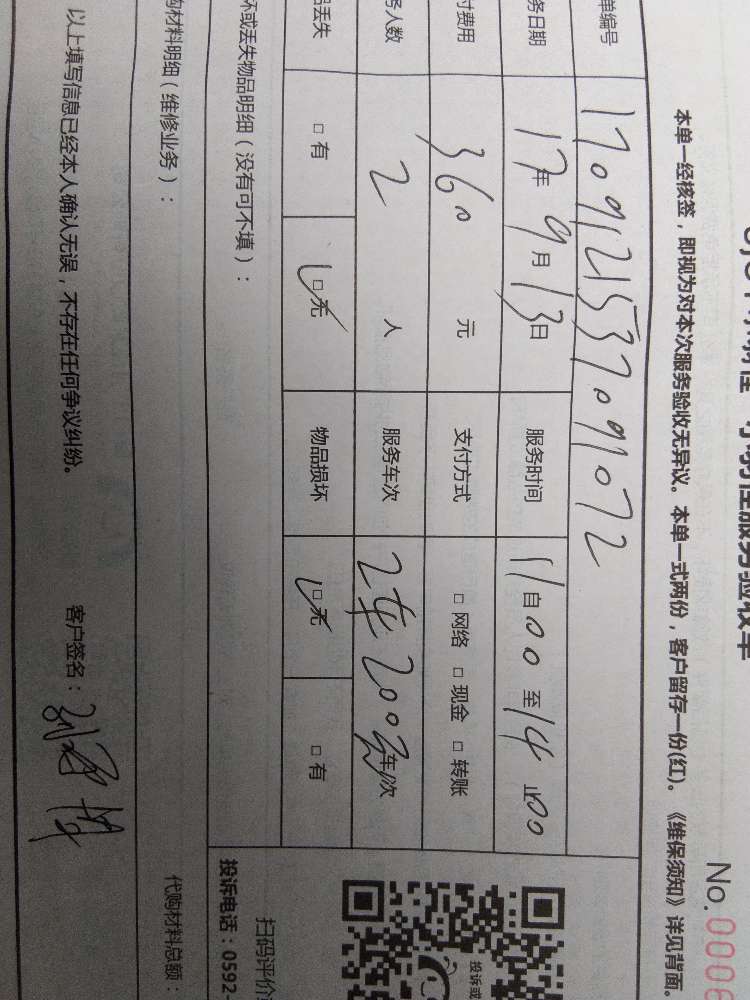 No.
本单一经核签，即视为对本次服务验收无异议。本单一式两份，客户留存一份(红)。《维保须知》详见背面。
单编号 1709121537091072
务日期 17年9月13日 服务时间 11自00至14止00
付费用 360 元 支付方式 □ 网络 □ 现金 □ 转账
务人数 2 人 服务车次 车次
品丢失 □ 有 □ 无 物品损坏 □ 无 □ 有
坏或丢失物品明细（没有可不填）：
投诉电话：0592-
扫码评价
投诉或
购材料明细（维修业务）：
代购材料总额：
以上填写信息已经本人确认无误，不存在任何争议纠纷。 客户签名：